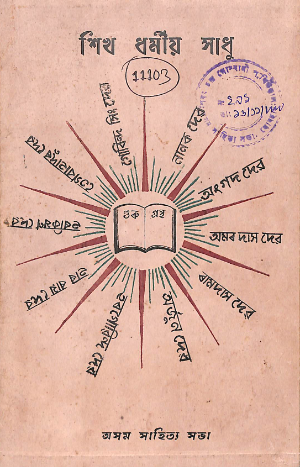 শিখ ধৰ্মীয় সাধু
11103
নানক দেৱ
অংগদ দেৱ
অমৰ দাস দেৱ
ৰামদাস দেৱ
অৰ্জুন দেৱ
হৰগোবিন্দ দেৱ
হৰি ৰায় দেৱ
হৰকিষণ দেৱ
তেগবাহাদুৰ দেৱ
গোবিন্দ সিং দেৱ
গুৰু গ্ৰন্থ
অসম সাহিত্য সভা